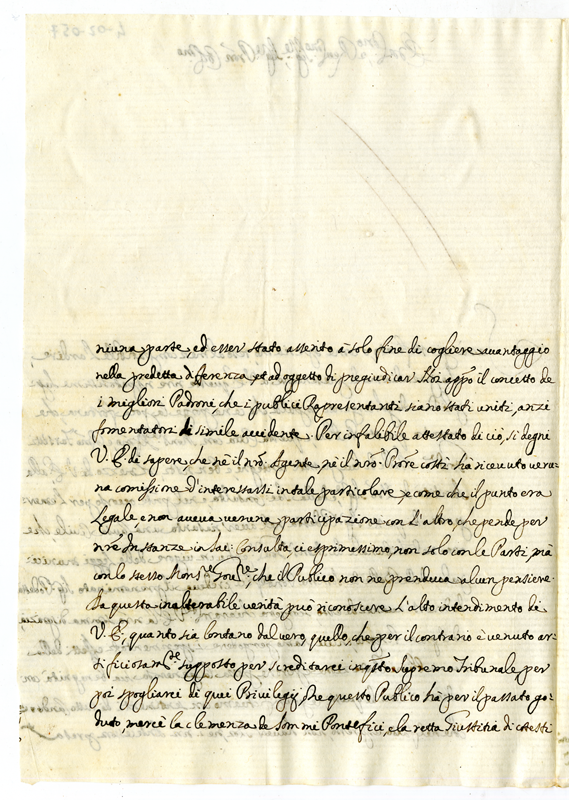 4-02-057
niuna parte, ed esser stato asserito à solo fine di cogliere avantaggio
nella predetta differenza, et ad oggetto di pregiudicar Noi appõ il concetto de
i migliori Padroni, che i publici Rapresentanti siano stati uniti, anzi
fomentatori di simile accidente. Per infalibile attestato di ciò, si degni
V. E. di sapere, che nè il nrõ. Agente, nè il nrõ. Prõre costì hà ricevuto veru=
na comissione d'interessarsi in tale particolare, e come che il punto era
Legale e non aveva veruna participazione con l'altro che pende per
nrẽ Instanze in Sac: Consulta, ci espressimo, non solo con le Parti, mà
con lo stesso Mons.re Gov.re, che il Publico non ne prendeva alcun pensiere.
Da questa inalterabile verità può riconoscere l'alto intendimento di
V. E., quanto sia lontano dal vero, quello, che per il contrario è venuto ar=
tificiosam.te supposto per screditarci in q̃sto supremo Tribunale, per
poi spogliarci di quei Privilegij, che questo Publico hà per il passato go=
duto, mercè la clemenza de Sommi Pontefici, e la retta Giustitia di cotesti